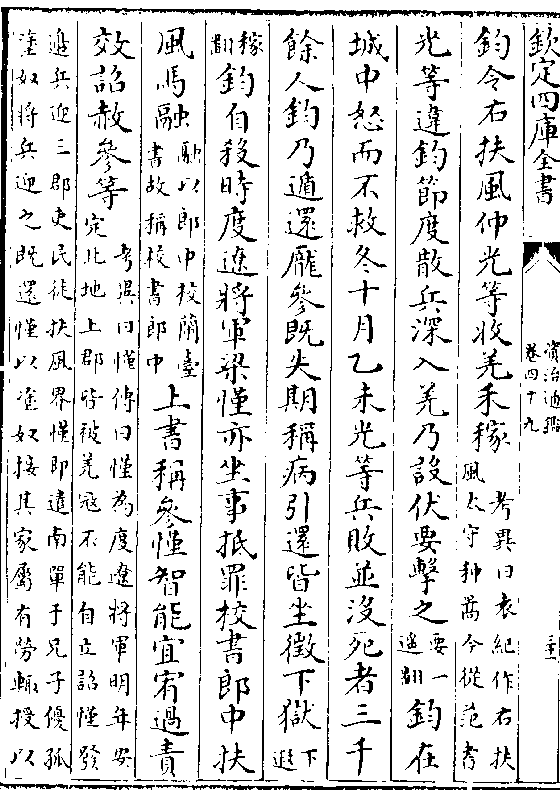 欽定四庫全書
資治通鑑
卷四十九
鈞令右扶風仲光等收羌禾稼考異曰袁紀作右扶風太守种暠今從范書
光等違鈞節度散兵深入羌乃設伏要擊之要一遥翻鈞在
城中怒而不救冬十月乙未光等兵敗並沒死者三千
餘人鈞乃遁還龎參既失期稱病引還皆坐徵下獄下遐
稼翻鈞自殺時度遼將軍梁慬亦坐事抵罪校書郎中扶
風馬融融以郎中校蘭臺書故稱校書郎中上書稱參慬智能宜宥過責
效詔赦參等考異曰慬傳曰慬為度遼將軍明年安定北地上郡皆被羌冦不能自立詔慬發
邊兵迎三郡吏民徙扶風界慬即遣南單于兄子優孤
塗奴將兵迎之既還慬以塗奴接其家屬有勞輒授以